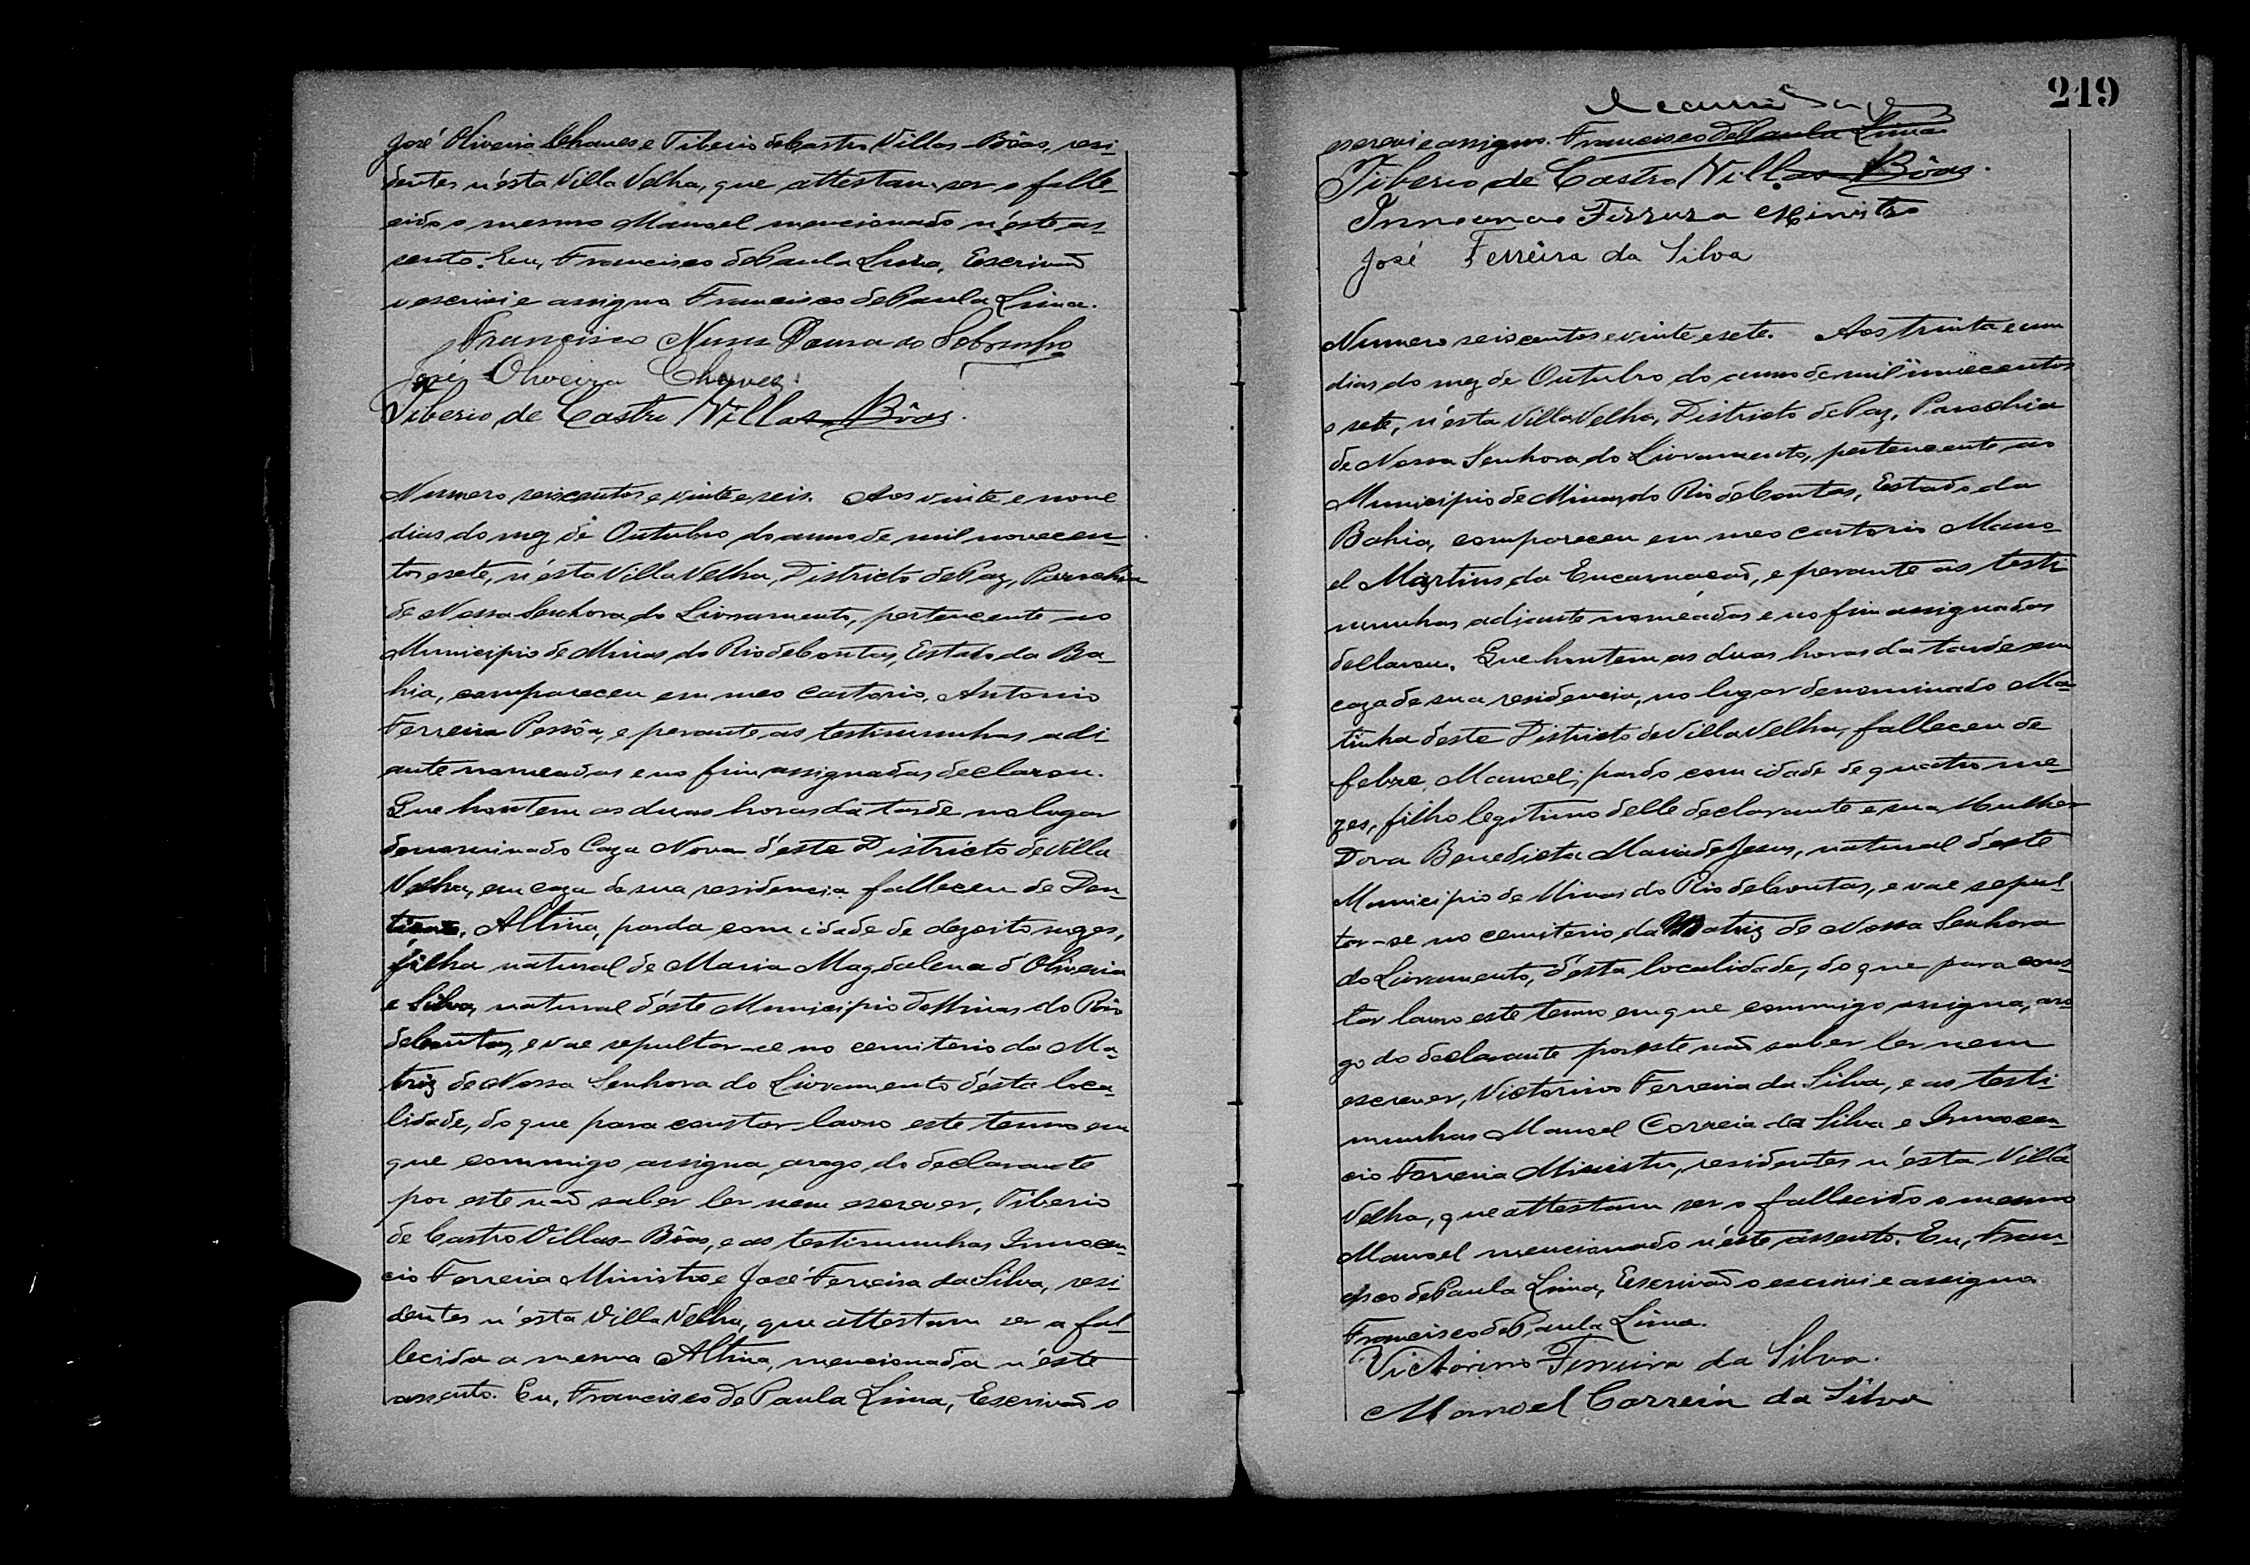 José Oliveira Chaves e Tiberio de Castro Villas-Bôas, resi-
dentes n'ésta Villa Velha, que attestam ser o falle-
cido o mesmo Manoel mencionado n'éste as-
sento. Eu, Francisco de Paula Lima, Escrivaõ
o escrivi e assigno Francisco de Paula Lima.
Francisco Nunes Sobrinho
José Oliveira Chaves.
Tiberio de Castro Villas-Bôas.
Numero seiscentos e vinte e seis. Aos vinte e nove
dias do mez de Outubro do anno de mil novecen-
tos e sete, n'ésta Villa Velha, Districto de Paz, Parochia
de Nossa Senhora do Livramento, pertencente ao
Municipio de Minas do Rio de Contas, Estado da Ba-
hia, compareceu em meo cartorio, Antonio
Ferreira Pessôa, e perante as testimunhas adi
ante nomeadas e no fim assignadas declarou.
Que hontem as duas horas da tarde no lugar
denominado Caza Nova d'éste Districto de Villa
Velha, em caza de sua residencia falleceu de Den-
tição, Altina, parda com idade de dezoito mezes,
filha natural de Maria Magdalena d'Oliveira
e Silva, natural d'éste Municipio de Minas do Rio
de Contas, e vae sepultar-se no cemiterio da Ma-
triz de Nossa Senhora do Livramento d'ésta loca-
lidade, do que para constar lavro este termo em
que commigo assigna, arogo do declarante
por este naõ saber ler nem escrever, Tiberio
de Castro Villas-Bôas, e as testimunhas Innocen-
cio Ferreira Ministro e José Ferreira da Silva, resi-
dentes n'ésta Villa Velha, que attestam ser a fal-
lecida a mesma Altina, mencionada n'éste
assento. Eu, Francisco de Paula Lima, Escrivaõ o
219
escrevi e assigno. Francisco de Paula Lima
Tiberio de Castro Villas-Bôas.
Innocencio Ferreira Ministro
José Ferreira da Silva
Numero seiscentos e vinte e sete. Aos trinta e um
dias do mez de Outubro do anno de mil novecentos
e sete, n'ésta Villa Velha, Districto de Paz, Parochia
de Nossa Senhora do Livramento, pertencente ao
Municipio de Minas do Rio de Contas, Estado da
Bahia, compareceu em meo cartorio Mano-
el Martins da Encarnacaõ, e perante as testi
munhas adiante nomeádas e no fim assignadas
declarou. Que hontem as duas horas da tarde em
caza de sua residencia, no lugar denominado Ma-
tinha deste Districto de Villa Velha, falleceu de
febre, Manoel, pardo com idade de quatro me-
zes, filho legitimo delle declarante e sua Mulher
Dona Benedicta Maria de Jesus, natural d'éste
Municipio de Minas do Rio de Contas, e vae sepul-
tar-se no cemiterio da Matriz de Nossa Senhora
do Livramento, d'ésta localidade, do que para cons-
tar lavro este termo em que commigo assigna, aro-
go do declarante por este naõ saber ler nem
escrever, Victorino Ferreira da Silva, e as testi-
munhas Manoel Correia da Silva e Innocen-
cio Ferreira Ministro, residentes n'ésta Villa
Velha, que attestam ser o fallecido o mesmo
Manoel mencionado n'éste assento. Eu, Fran-
cisco de Paula Lima, Escrivaõ o escrivi e assigno
Francisco de Paula Lima.
Victorino Ferreira da Silva.
Manoel Correia da Silva